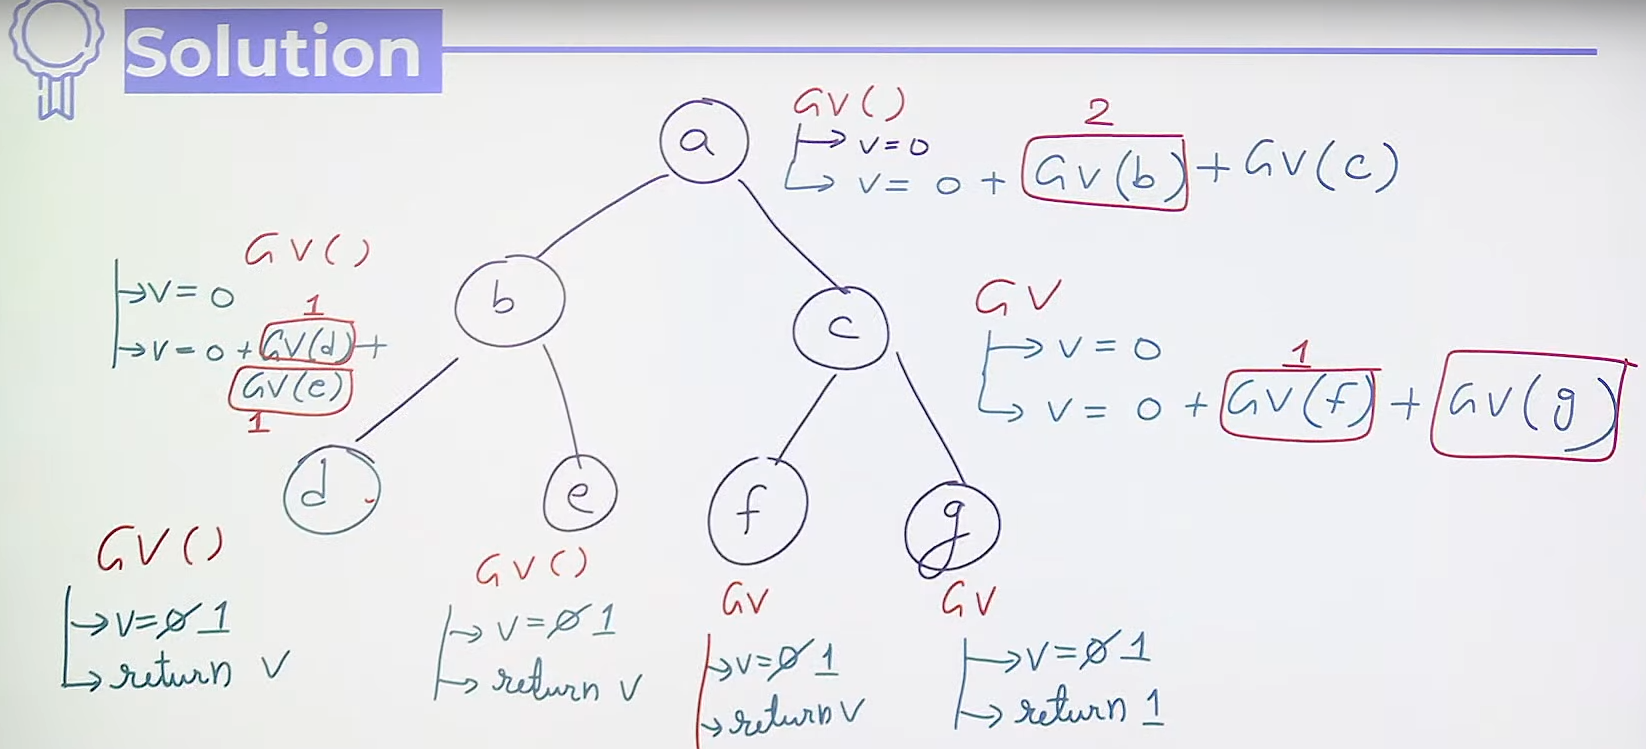 Solution
a
GV()
→ v=0
2
→ v= 0 + GV(b) + GV(c)
b
GV()
→v=0
1
→v=0+GV(d)+
GV(e)
1
c
GV
→ v=0
1
→ v= 0 + GV(f) + GV(g)
d
e
f
g
GV()
→v=0 1
→return v
GV()
→ v=0 1
→ return v
GV
→v=0 1
→return v
GV
→v=0 1
→ return 1